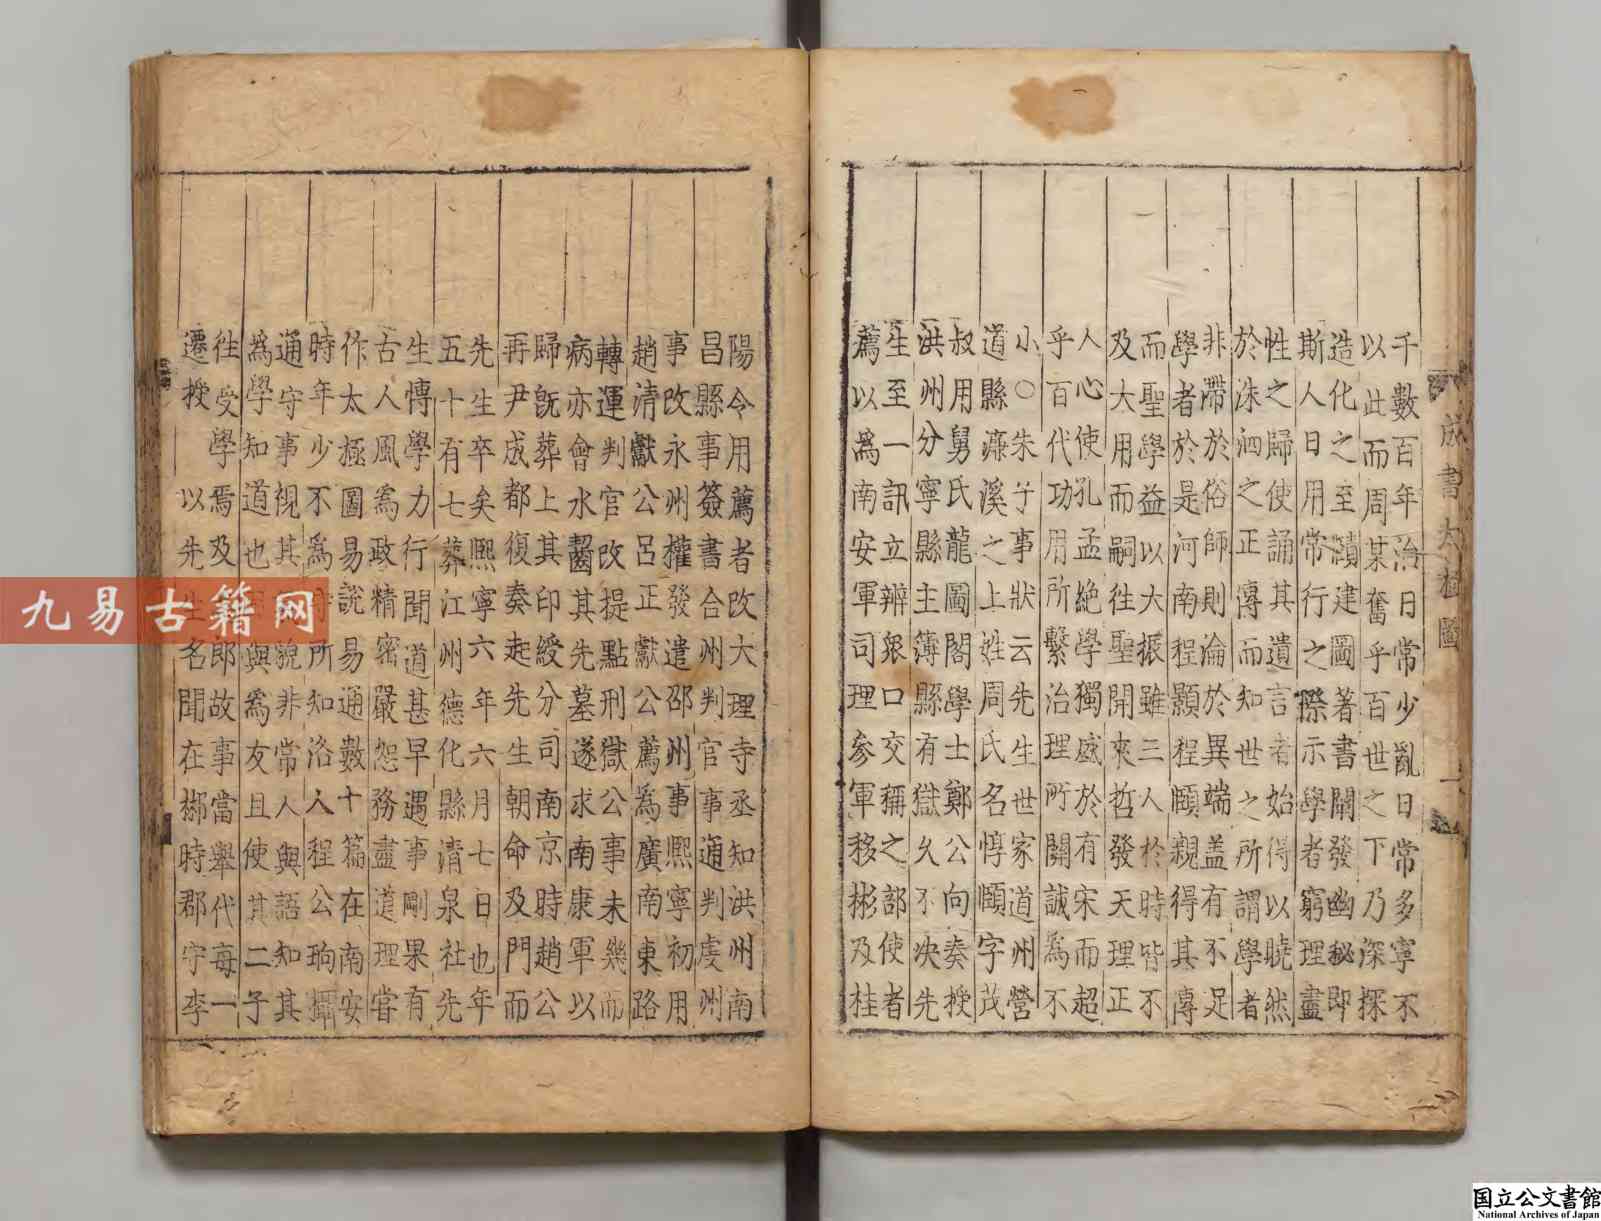 千數百年治日常少亂日常多寧不
以此而周某奮乎百世之下乃深探
造化之至賾建圖著書闡發幽秘即
斯人日用常行之際示學者窮理盡
性之歸使誦其遺言者始得以曉然
於洙泗之正傳而知世之所謂學者
非滯於俗師則淪於異端盖有不足
學者於是河南程顥程頤親得其傳
而聖學益以大振雖三人於時皆不
及大用而嗣徃聖開來哲發天理正
人心使孔孟絶學獨盛於有宋而超
乎百代功用所繫治理所關誠為不
小○朱子事狀云先生世家道州營
道縣濂溪之上姓周氏名惇頤字茂
叔用舅氏龍圖閣學士鄭公向奏授
洪州分寧縣主簿縣有獄久不决先
生至一訊立辨衆口交稱之部使者
薦以爲南安軍司理參軍移彬及桂
成書太極圖
陽令用薦者改大理寺丞知洪州南
昌縣事簽書合州判官事通判虔州
事改永州權發遣邵州事熙寧初用
趙清獻公呂正獻公薦為廣南東路
轉運判官改提點刑獄公事未幾而
病亦會水齧其先墓遂求南康軍以
歸旣葬上其印綬分司南京時趙公
再尹成都復奏起先生朝命及門而
先生卒矣熙寧六年六月七日也年
五十有七葬江州德化縣清泉社先
生博學力行聞道甚早遇事剛果有
古人風為政精密嚴恕務盡道理嘗
作太極圖易説易通數十篇在南安
時年少不為守所知洛人程公珦攝
通守事視其貌非常人與語知其
為學知道也與為友且使其二子
徃受學焉及郎故事當舉代每一
遷授以先生名聞在郴時郡守李
九易古籍网
国立公文書館
National Archives of Japan